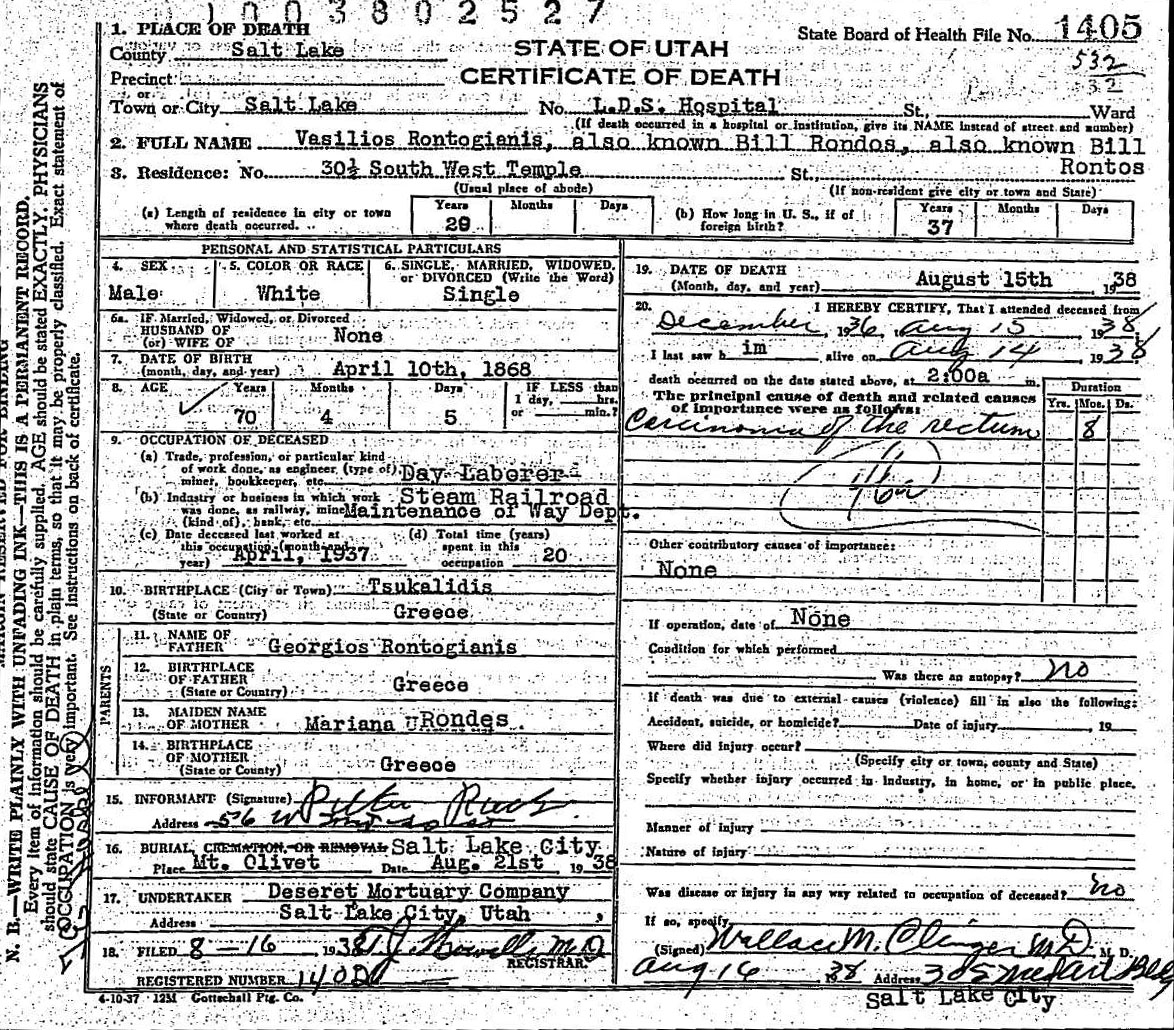 1003802527
1. PLACE OF DEATH
County Salt Lake
STATE OF UTAH
CERTIFICATE OF DEATH
State Board of Health File No. 1405
532
32
Precinct
or
Town or City Salt Lake No. L.D.S. Hospital St., Ward
(If death occurred in a hospital or institution, give its NAME instead of street and number)
2. FULL NAME Vasilios Rontogianis, also known Bill Rondos, also known Bill
Rontos
3. Residence: No. 30½ South West Temple St.
(Usual place of abode) (If non-resident give city or town and State)
(a) Length of residence in city or town where death occurred. Years 29 Months Days
(b) How long in U. S., if of foreign birth? Years 37 Months Days
PERSONAL AND STATISTICAL PARTICULARS
4. SEX Male
5. COLOR OR RACE White
6. SINGLE, MARRIED, WIDOWED, or DIVORCED (Write the Word) Single
6a. IF Married, Widowed, or Divorced
HUSBAND OF
(or) WIFE OF None
7. DATE OF BIRTH
(month, day, and year) April 10th, 1868
8. AGE Years 70 Months 4 Days 5 IF LESS than 1 day, hrs. or min.?
9. OCCUPATION OF DECEASED
(a) Trade, profession, or particular kind
of work done, as engineer, (type of)
miner, bookkeeper, etc. Day Laborer
(b) Industry or business in which work
was done, as railway, mine
(kind of), bank, etc. Steam Railroad
Maintenance of Way Dept.
(c) Date deceased last worked at
this occupation (month and
year) April, 1937
(d) Total time (years)
spent in this
occupation 20
10. BIRTHPLACE (City or Town) Tsukalidis
(State or Country) Greece
PARENTS
11. NAME OF
FATHER Georgios Rontogianis
12. BIRTHPLACE
OF FATHER
(State or Country) Greece
13. MAIDEN NAME
OF MOTHER Mariana Rondes
14. BIRTHPLACE
OF MOTHER
(State or County) Greece
15. INFORMANT (Signature)
Address
16. BURIAL, CREMATION, OR REMOVAL Salt Lake City
Place Mt. Olivet Date Aug. 21st 1938
17. UNDERTAKER Deseret Mortuary Company
Address Salt Lake City, Utah
18. FILED 8-16 1938 M.D
REGISTRAR.
REGISTERED NUMBER
4-10-37 12M Gottschall Ptg. Co.
19. DATE OF DEATH
(Month, day, and year) August 15th 1938
20. I HEREBY CERTIFY, That I attended deceased from
December, 1936, Aug 15, 1938
I last saw him alive on Aug 14, 1938
death occurred on the date stated above, at 2:00a m.
The principal cause of death and related causes
of importance were as follows:
Duration
Yrs. Mos. Ds.
Carcinoma of the rectum 8
Other contributory causes of importance:
None
If operation, date of None
Condition for which performed
Was there an autopsy? no
If death was due to external causes (violence) fill in also the following:
Accident, suicide, or homicide? Date of injury , 19
Where did injury occur?
(Specify city or town, county and State)
Specify whether injury occurred in industry, in home, or in public place.
Manner of injury
Nature of injury
Was disease or injury in any way related to occupation of deceased? no
If so, specify
(Signed) Wallace M. Clinger MD, M. D.
Aug 16 1938 Address
Salt Lake City
N. B.—WRITE PLAINLY WITH UNFADING INK—THIS IS A PERMANENT RECORD.
Every item of information should be carefully supplied. AGE should be stated EXACTLY. PHYSICIANS
should state CAUSE OF DEATH in plain terms, so that it may be properly classified. Exact statement of
OCCUPATION is very important. See instructions on back of certificate.